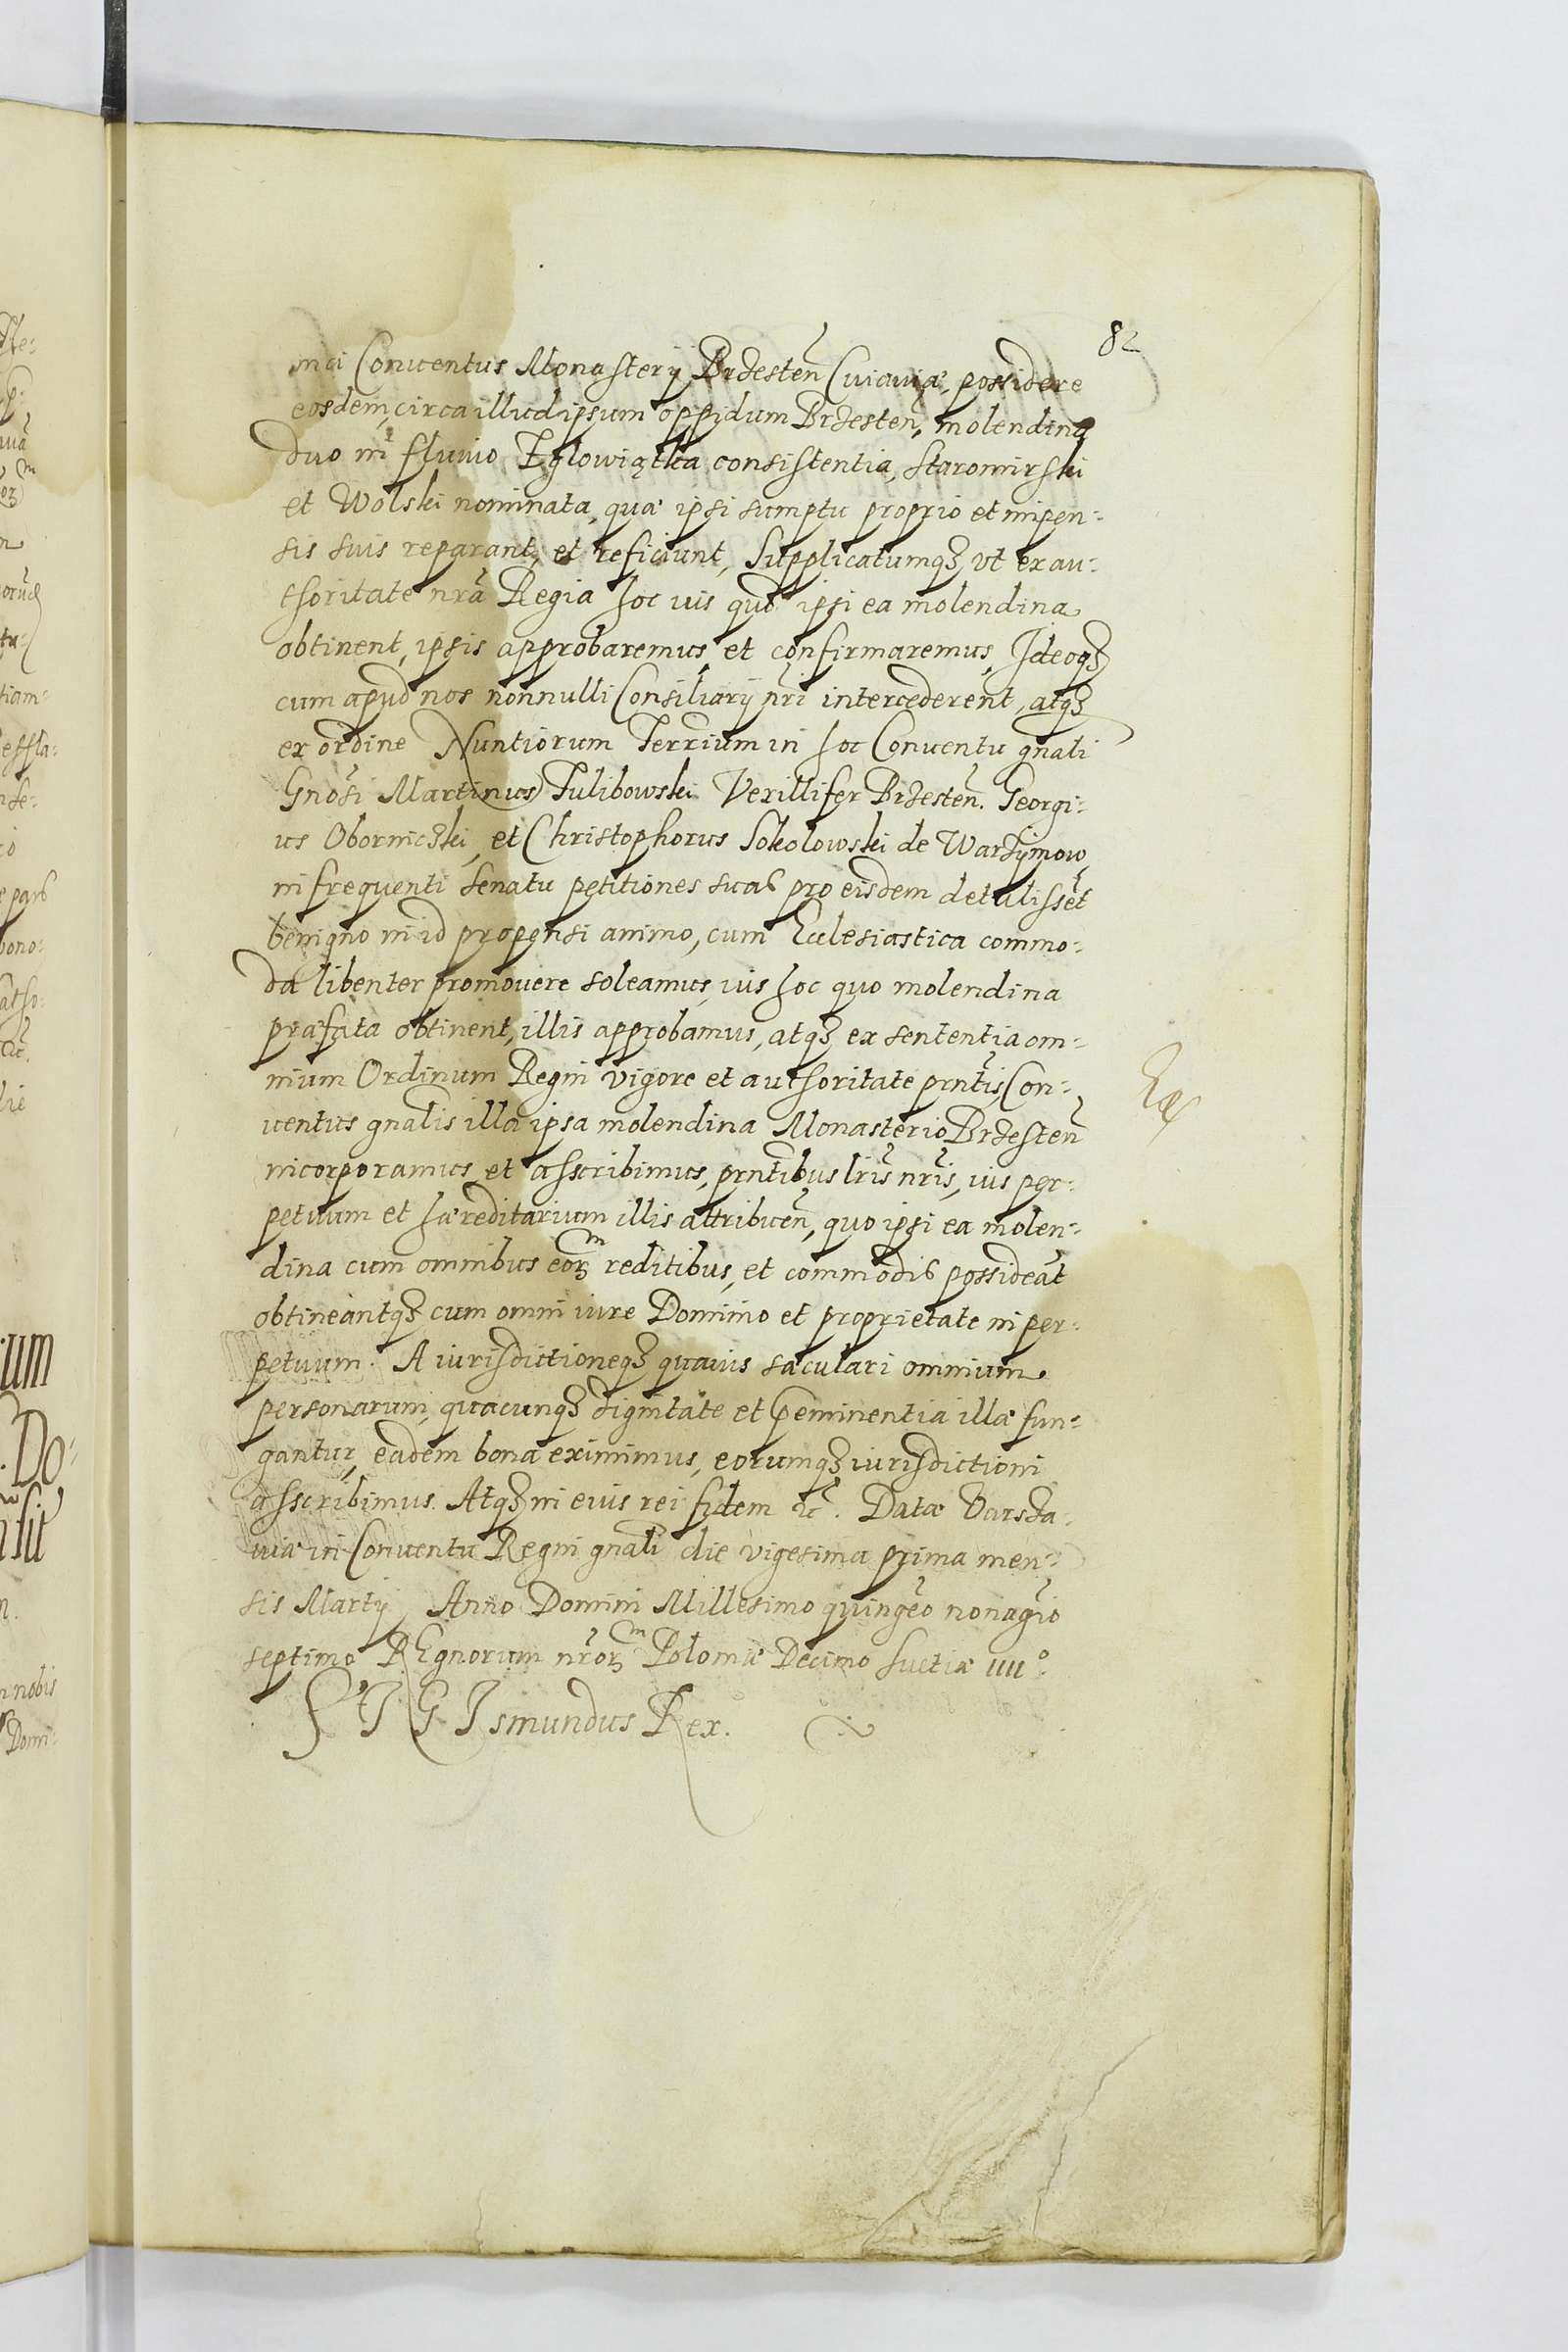 82
nici Conuentus Monasterij Brzesteñ Cuiauiæ, possidere
eosdem, circa illud ipsum oppidum Brzesteñ, molendina
duo in fluuio Zglowiątka consistentia, Staromirski
et Wolski nominata, quæ ipsi sumptu proprio et inpen-
sis suis reparant, et reficiunt, Supplicatumqȝ vt ex au-
thoritate nrã Regia hoc ius quo ipsi ea molendina
obtinent, ipsis approbaremus, et confirmaremus, Ideoqȝ
cum apud nos nonnulli Consiliarij nr̃i intercederent, atqȝ
ex ordine Nuntiorum Terrium in hoc Conuentu gñali
Gnõsi Martinus Tulibowski Vexillifer Brzesteñ. Georgi-
us Obornicȝki, et Christophorus Sokolowski de Warzymow
in frequenti Senatu petitiones suas pro eisdem detulissẽt
benigno in id propensi animo, cum Ecclesiastica commo-
da libenter promouere soleamus, ius hoc quo molendina
præfata obtinent, illis approbamus, atqȝ ex sententia om-
nium Ordinum Regni vigore et authoritate prñtis Con-
uentus gñalis illa ipsa molendina Monasterio Brzesteñ
incorporamus et asscribimus, prñtibus lrĩs nrĩs, ius per-
petuum et hæreditarium illis attribueñ, quo ipsi ea molen-
dina cum omnibus eoꝝm reditibus, et commodis possideãt
obtineantqȝ cum omni iure Dominio et proprietate in per-
petuum. A iurisdictioneqȝ quauis sæculari omnium
personarum, quacunqȝ dignitate et p̃eminentia illæ fun-
gantur, eadem bona eximimus, eorumqȝ iurisdictioni
asscribimus. Atqȝ in eius rei fidem ꝛc̃. Datæ Varsza-
uiæ in Conuentu Regni gñali die vigesima prima men-
sis Martij Anno Domini Millesimo quingẽo nonagĩo
septimo REgnorum nr̃oꝝm Poloniæ Decimo Suetiæ IIII°.
SIGIsmundus Rex.